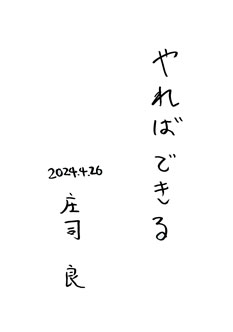 やればできる
2024.4.26
庄司 良